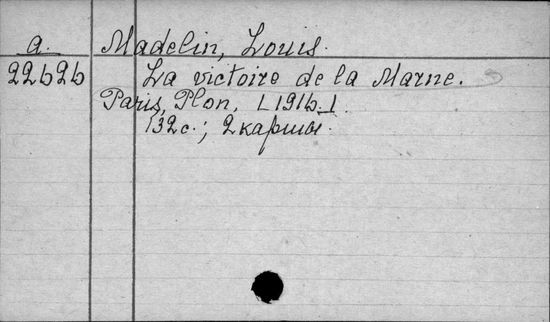 a. Madelin, Louis.
22626 La victoire de la Marne.
Paris, Plon, [1916.]
132 с.; 2 карты.